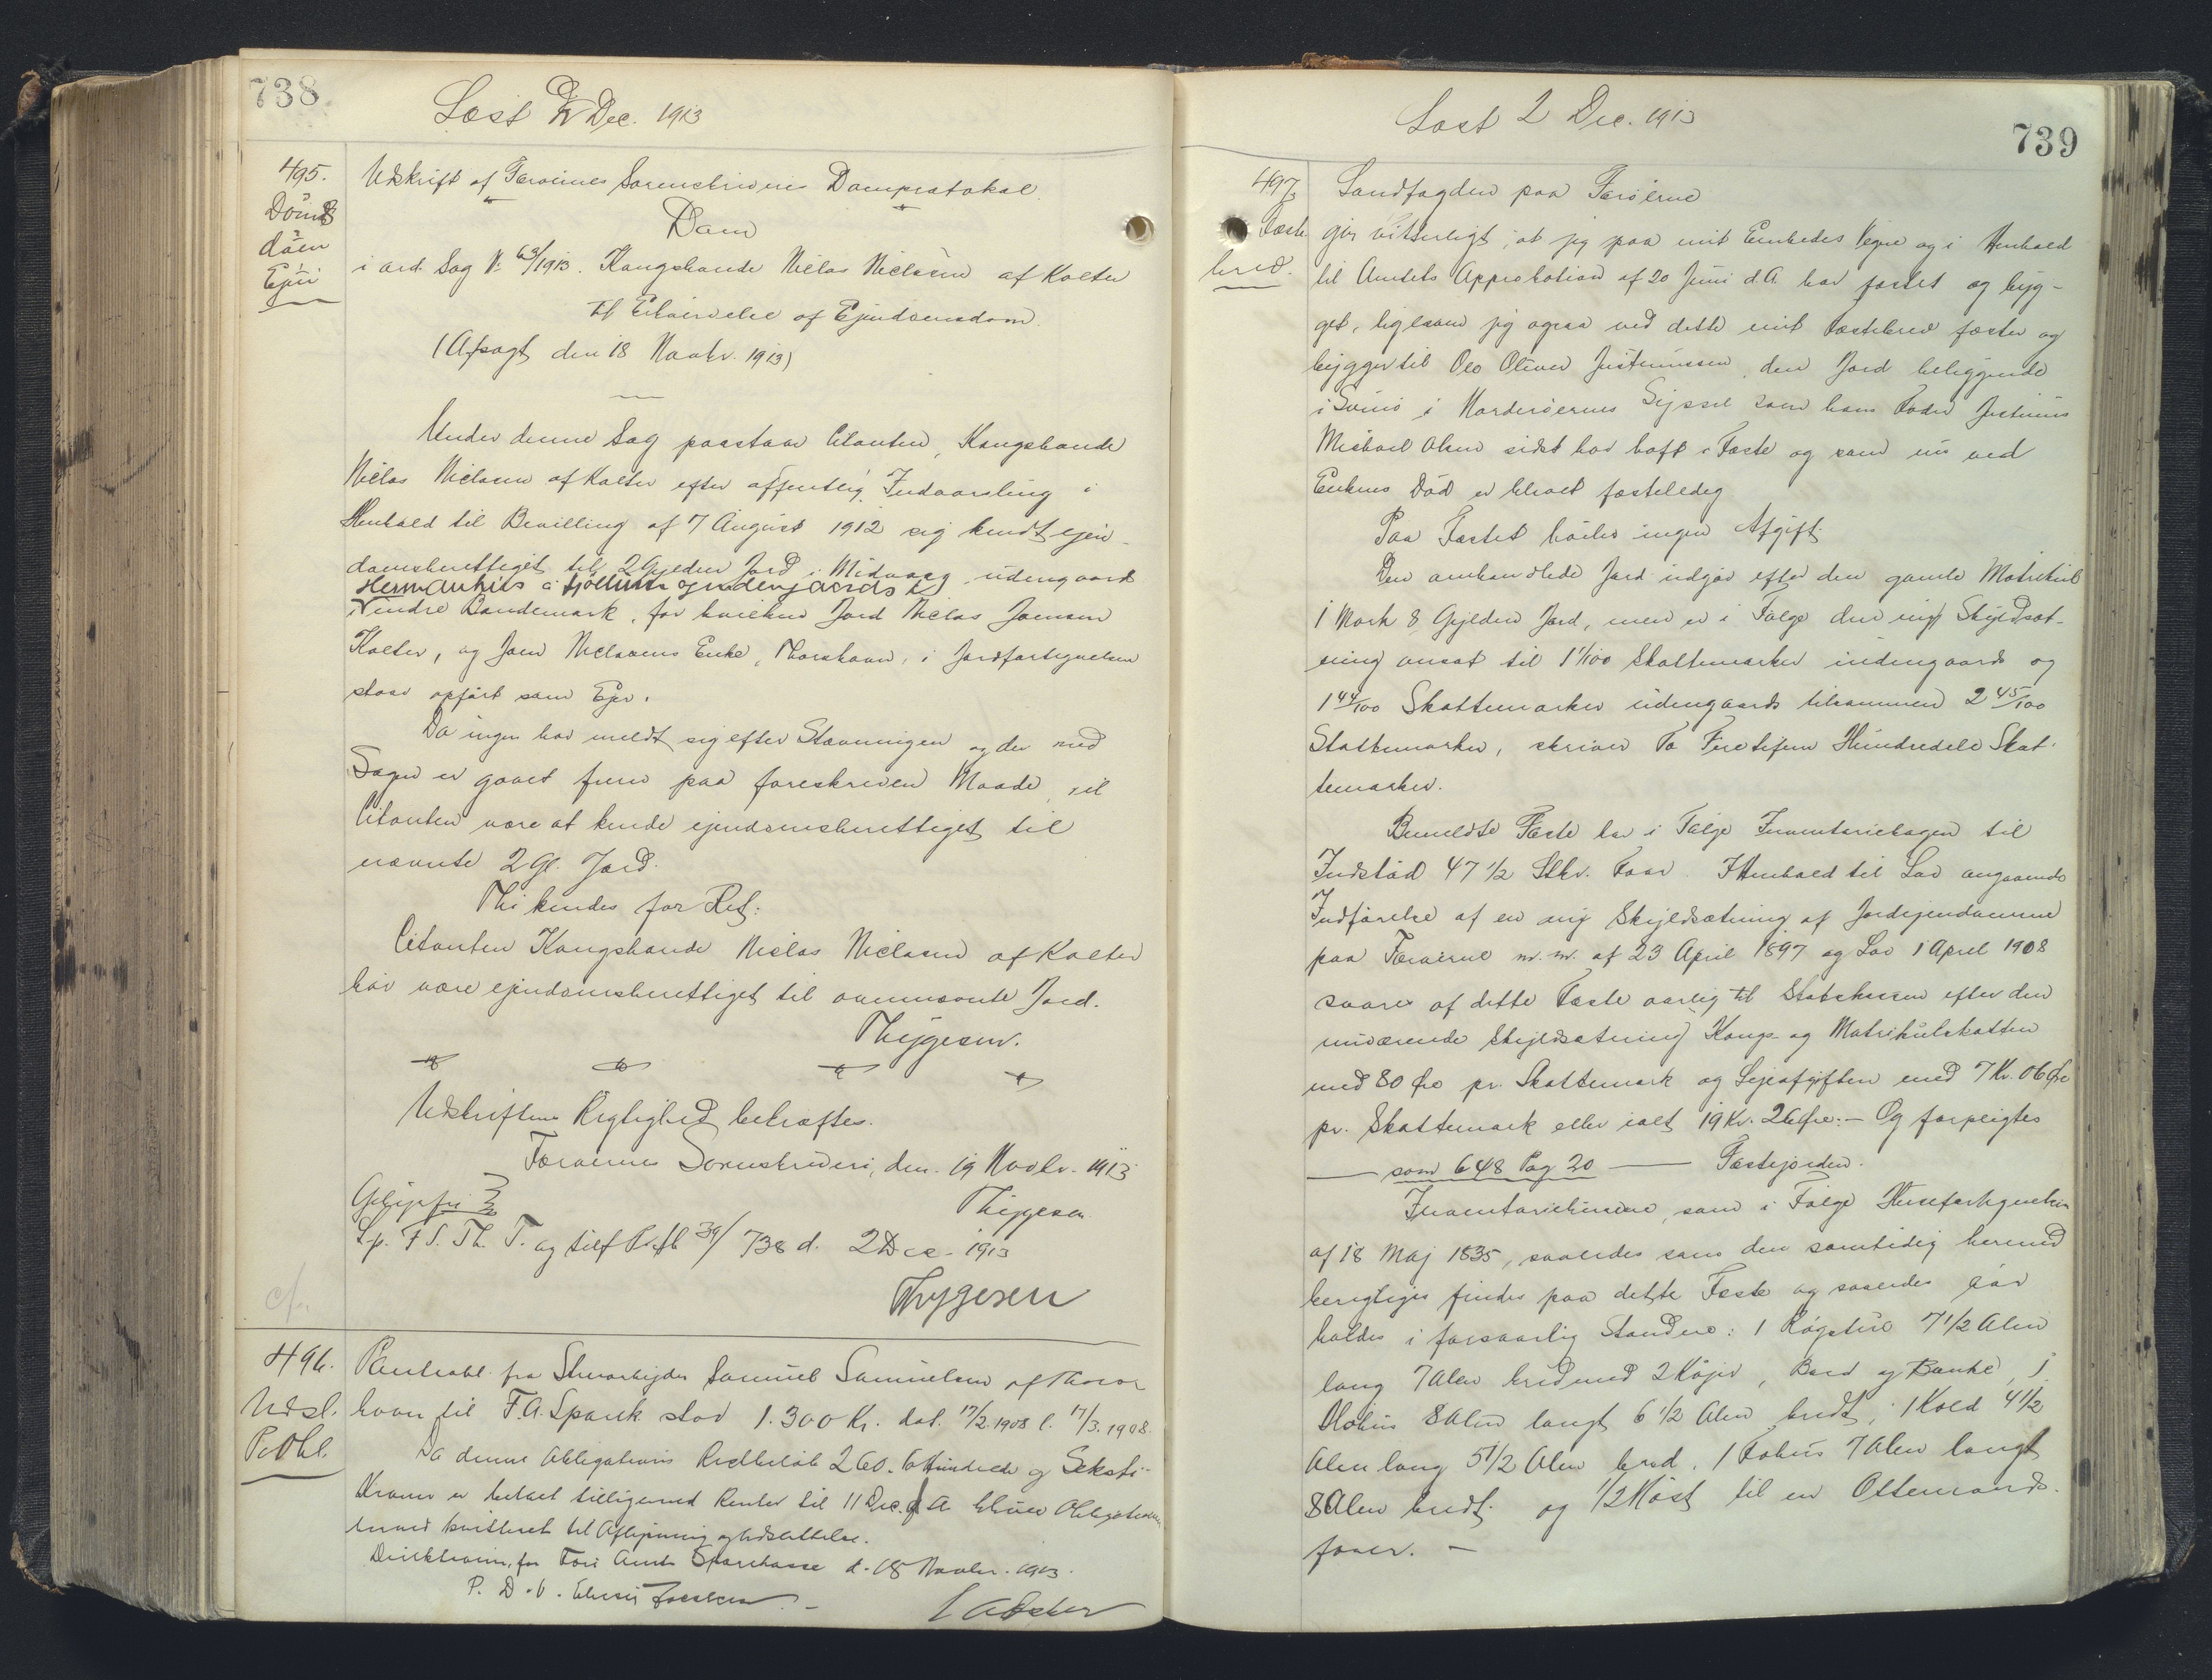 738
Læst 2 Dec. 1913
495.
Udskrift af Færøernes Sorenskriveris Domprotokol.
Dom
i ord. Sag No 63/1913. Kongsbonde Niclas Niclasen af Kolter
til Erhvervelse af Ejendomsdom
(Afsagt den 18 Novbr. 1913)
Under denne Sag paastaar Citanten, Kongsbonde
Niclas Niclasen af Kolter efter offentlig Indvarsling i
Henhold til Bevilling af 7 August 1912 sig kendt ejen-
domsberettiget til 2 Gylden Jord i Midvaag udengaards
Vindre Bøndemark, for hvilken Jord Niclas Joensen
Kolter, og Joen Niclasens Enke, Thorshavn, i Jordfortegnelsen
staar opført som Ejer.
Da ingen har meldt sig efter Stævningen og der med
Sagen er gaaet frem paa foreskreven Maade, vil
Citanten være at kende ejendomsberettiget til
nævnte 2 Gl. Jord.
Thi kendes for Ret:
Citanten Kongsbonde Niclas Niclasen af Kolter
bør være ejendomsberettiget til ovennævnte Jord.
Thygesen.
Udskriftens Rigtighed bekræftes.
Færøernes Sorenskriveri, den 19 Novbr. 1913
Gebyrfri
Thygesen
L. p. F. S. Th. T. og tilf Prtkl 39/738 d. 2 Dec. 1913
Thygesen
cfr.
496.
Udsl.
P. Obl.
Panteobl. fra Skovarbejder Samuel Samuelsen af Thors
havn til F. A. Spark stor 1.300 Kr. dat. 17/2 1908 l. 17/3. 1908.
Da denne Obligations Restbeløb 260. to Hundrede og Seksti
Kroner er betalt tilligemed Renter til 11 Dec. d A bliver Obligationen
herved kvitteret til Aflysning og Udslettelse.
Direktionen for Færø Amts Sparekasse d. 18 Novbr. 1913.
P. D. V.
739
Læst 2 Dec. 1913
497.
Fæste
brev.
Landfogden paa Færøerne
gør vitterligt, at jeg paa mit Embedes Vegne og i Henhold
til Amtets Approbation af 20 Juni d. A. har fæstet og byg-
get, ligesom jeg ogsaa ved dette mit Fæstebrev fæster og
bygger til Ole Oliver Justinussen den Jord beliggende
i Svinø i Norderøernes Syssel som hans Fader Justinus
Michael Olsen sidst har haft i Fæste og som nu ved
Enkens Død er blevet fæsteledig
Paa Fæstet hviler ingen Afgift.
Den omhandlede Jord udgør efter den gamle Matrikul
1 Mark 8 Gylden Jord, men er i Følge den ny Skyldsæt-
ning ansat til 1 1/100 Skattemarker indengaards og
1 44/100 Skattemarker udengaards tilsammen 2 45/100
Skattemarker, skriver To Fire ti fem Hundredele Skat-
temarker.
Bemeldte Fæste har i Følge Inventariebogen til
Indstød 47 1/2 Stkr. Faar. I Henhold til Lov angaaende
Indførelse af en ny Skyldsætning af Jordejendomme
paa Færøerne m. m. af 23 April 1897 og Lov 1 April 1908
svares af dette Fæste aarlig til Statskassen efter den
nuværende Skyldsætning Konge- og Matrikulskatten
med 80 Øre pr. Skattemark og Lejeafgiften med 7 Kr. 06 Øre
pr. Skattemark eller ialt 19 Kr. 26 Øre. – Og forpligtes
— som 648 Pag 20 — Fæstejorden.
Inventariehusene, som i Følge Husefortegnelsen
af 18 Maj 1835, saaledes som den samtidig hermed
berigtiges findes paa dette Fæste og saaledes bør
holdes i forsvarlig Stand ere: 1 Røgstue 7 1/2 Alen
lang 7 Alen bred med 2 Køjer, Bord og Bænke, 1
Hjøhus 8 Alen langt 6 1/2 Alen bredt, 1 Kold 4 1/2
Alen lang 5 1/2 Alen bred. 1 Fæhus 7 Alen langt
8 Alen bredt. og 1/2 Nøst til en Ottemands-
farer. –